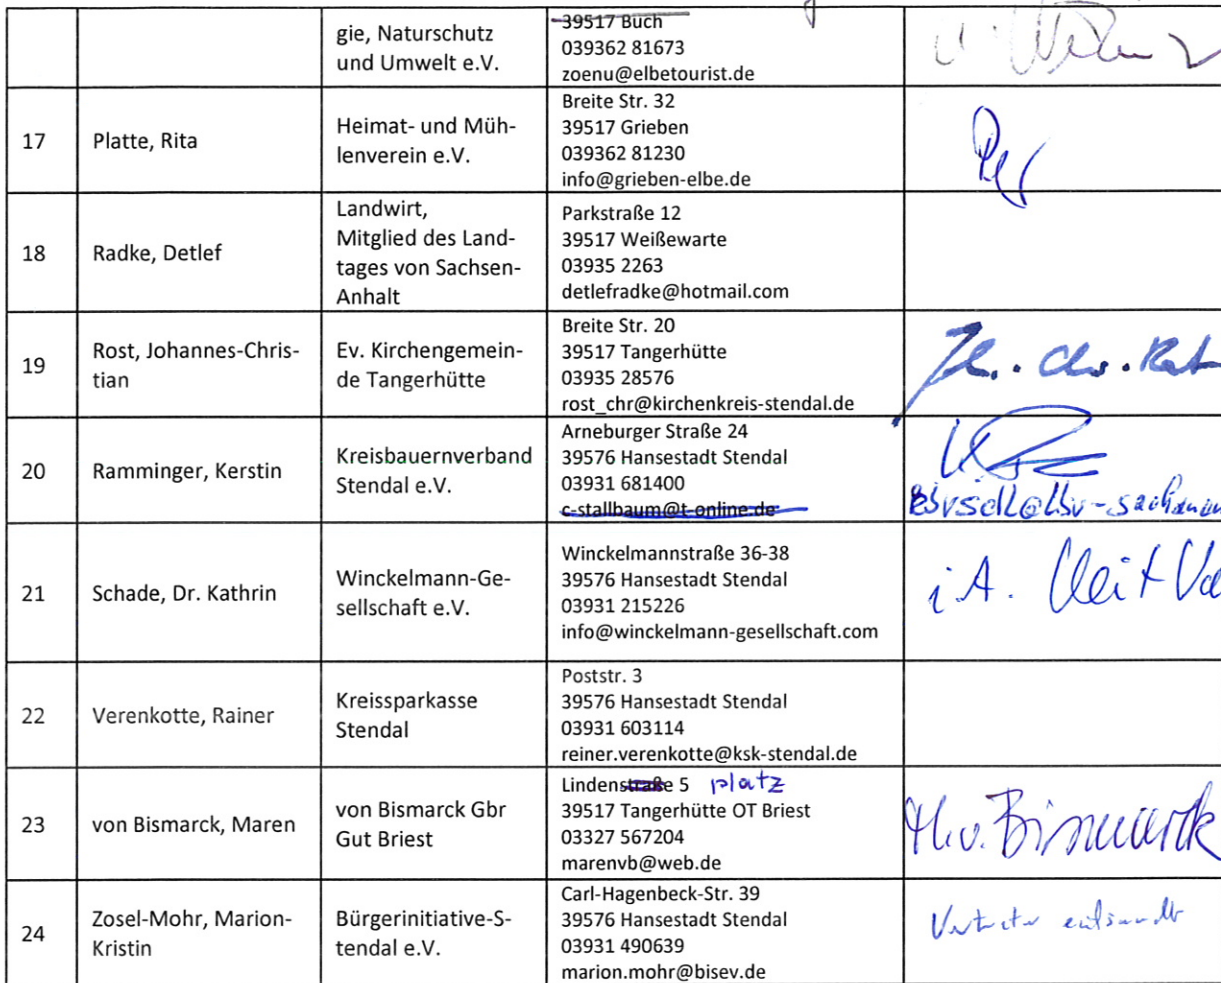 gie, Naturschutz
und Umwelt e.V.
39517 Buch
039362 81673
zoenu@elbetourist.de
17
Platte, Rita
Heimat- und Müh-
lenverein e.V.
Breite Str. 32
39517 Grieben
039362 81230
info@grieben-elbe.de
18
Radke, Detlef
Landwirt,
Mitglied des Land-
tages von Sachsen-
Anhalt
Parkstraße 12
39517 Weißewarte
03935 2263
detlefradke@hotmail.com
19
Rost, Johannes-Chris-
tian
Ev. Kirchengemein-
de Tangerhütte
Breite Str. 20
39517 Tangerhütte
03935 28576
rost_chr@kirchenkreis-stendal.de
20
Ramminger, Kerstin
Kreisbauernverband
Stendal e.V.
Arneburger Straße 24
39576 Hansestadt Stendal
03931 681400
c-stallbaum@t-online.de
21
Schade, Dr. Kathrin
Winckelmann-Ge-
sellschaft e.V.
Winckelmannstraße 36-38
39576 Hansestadt Stendal
03931 215226
info@winckelmann-gesellschaft.com
i.A.
22
Verenkotte, Rainer
Kreissparkasse
Stendal
Poststr. 3
39576 Hansestadt Stendal
03931 603114
reiner.verenkotte@ksk-stendal.de
23
von Bismarck, Maren
von Bismarck Gbr
Gut Briest
Lindenstraße 5 platz
39517 Tangerhütte OT Briest
03327 567204
marenvb@web.de
M.v. Bismarck
24
Zosel-Mohr, Marion-
Kristin
Bürgerinitiative-S-
tendal e.V.
Carl-Hagenbeck-Str. 39
39576 Hansestadt Stendal
03931 490639
marion.mohr@bisev.de
Vertreter entsandt